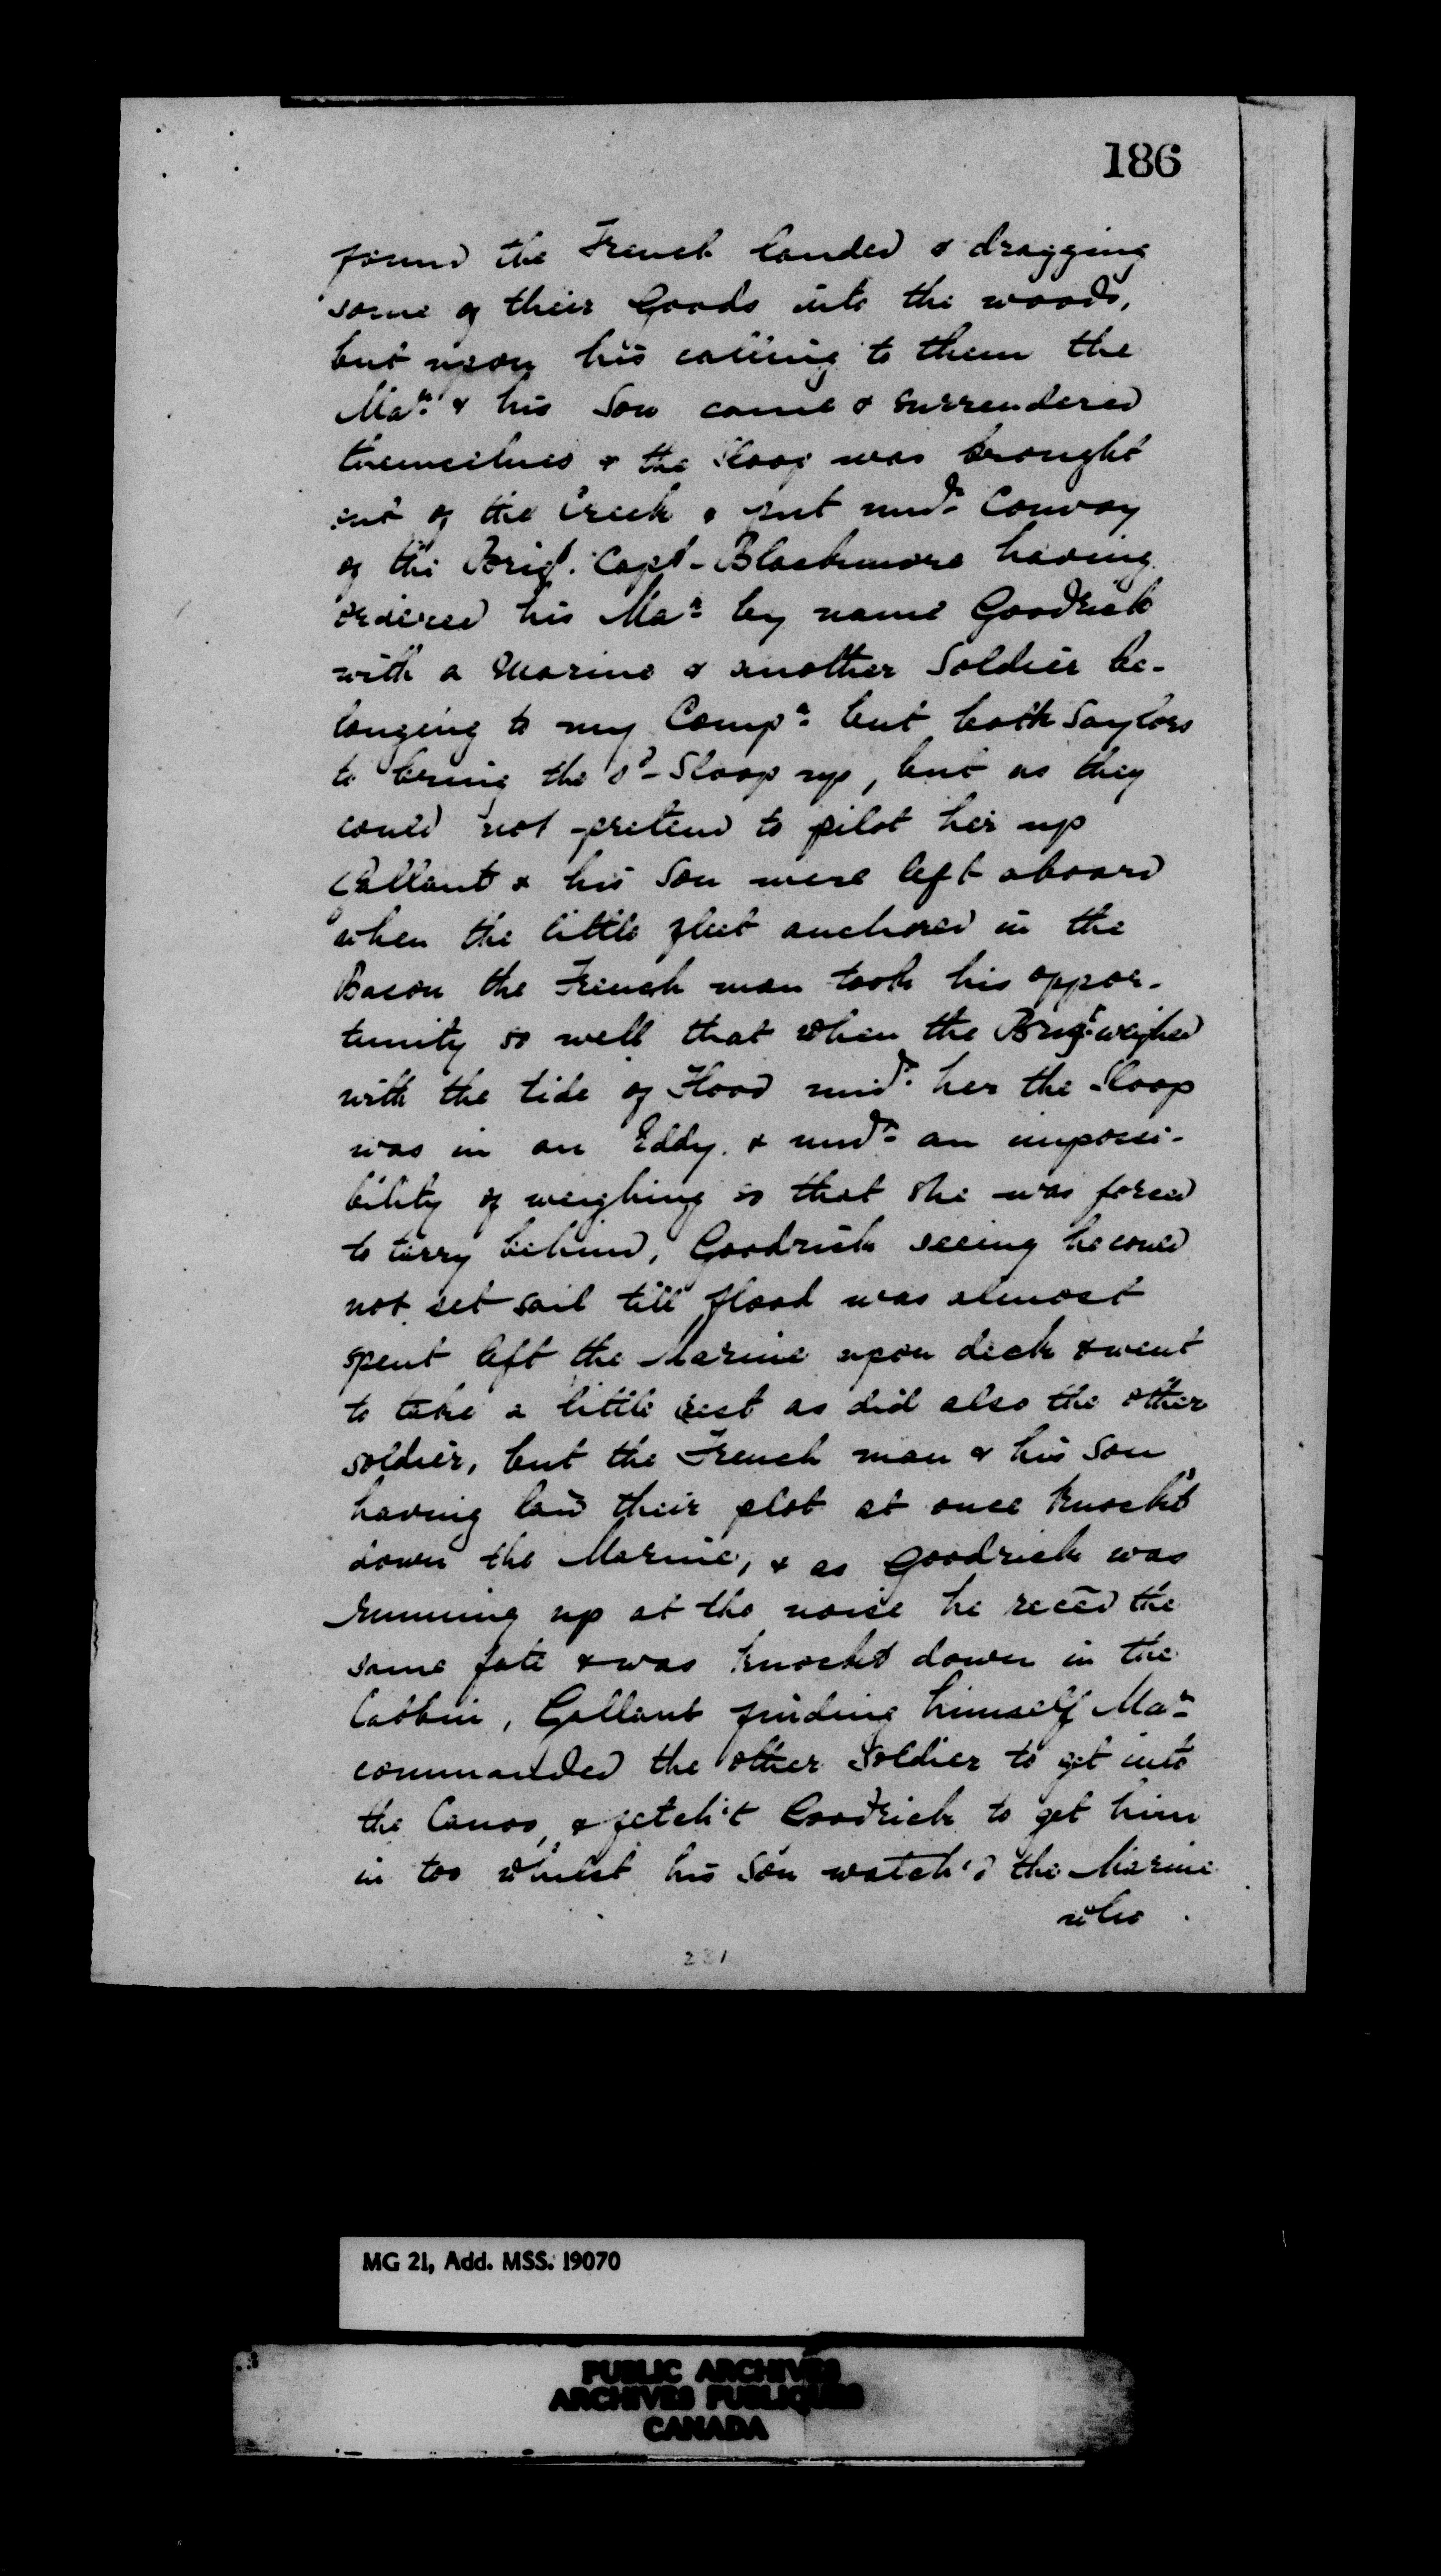 186
found the French landed & dragging
some of their Goods into the woods,
but upon his calling to them the
Mar. & his Son came & surrendered
themselves & the Sloop was brought
out of the Creek & put undr. Convoy
of the Brigt. Capt. Blackmore having
ordered his Mar. by name Goodrick
with a Marine & another Soldier be-
longing to my Compa. but both Saylors
to bring the sd. Sloop up, but as they
could not pretend to pilot her up
Gallant & his Son were left aboard
when the little fleet anchored in the
Bason the French man took his oppor-
tunity so well that when the Brigt. weighed
with the tide of Flood undr. her the Sloop
was in an Eddy & undr. an impossi-
bility of weighing so that she was forced
to tarry behind, Goodrich seeing he could
not set sail till flood was almost
spent left the Marine upon deck & went
to take a little rest as did also the other
soldier, but the French man & his Son
having laid their plot at once knockt
down the Marine, & as Goodrich was
running up at the noise he recēd the
same fate & was knockt down in the
Cabbin, Gallant finding himself Mar.
commanded the other Soldier to get into
the Canoo, & fetch't Goodrich to get him
in too whilst his Son watch'd the Marine
who
221
MG 21, Add. MSS. 19070
PUBLIC ARCHIVES
ARCHIVES PUBLIQUES
CANADA